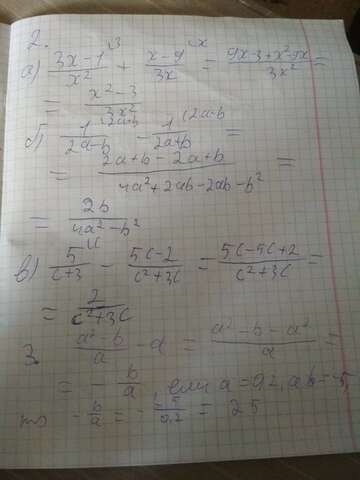 2.
а) (3x-1)/x² \3 + (x-9)/3x \x = (9x-3+x²-9x)/3x² =
= (x²-3)/3x²
б) 1/(2a-b) \2a+b - 1/(2a+b) \2a-b =
= (2a+b-2a+b)/(4a²+2ab-2ab-b²) =
= 2b/(4a²-b²)
в) 5/(c+3) \c - (5c-2)/(c²+3c) = (5c-5c+2)/(c²+3c) =
= 2/(c²+3c)
3. (a²-b)/a - a = (a²-b-a²)/a =
= - b/a если a=0,2, a b=-5,
то - b/a = - -5/0,2 = 25